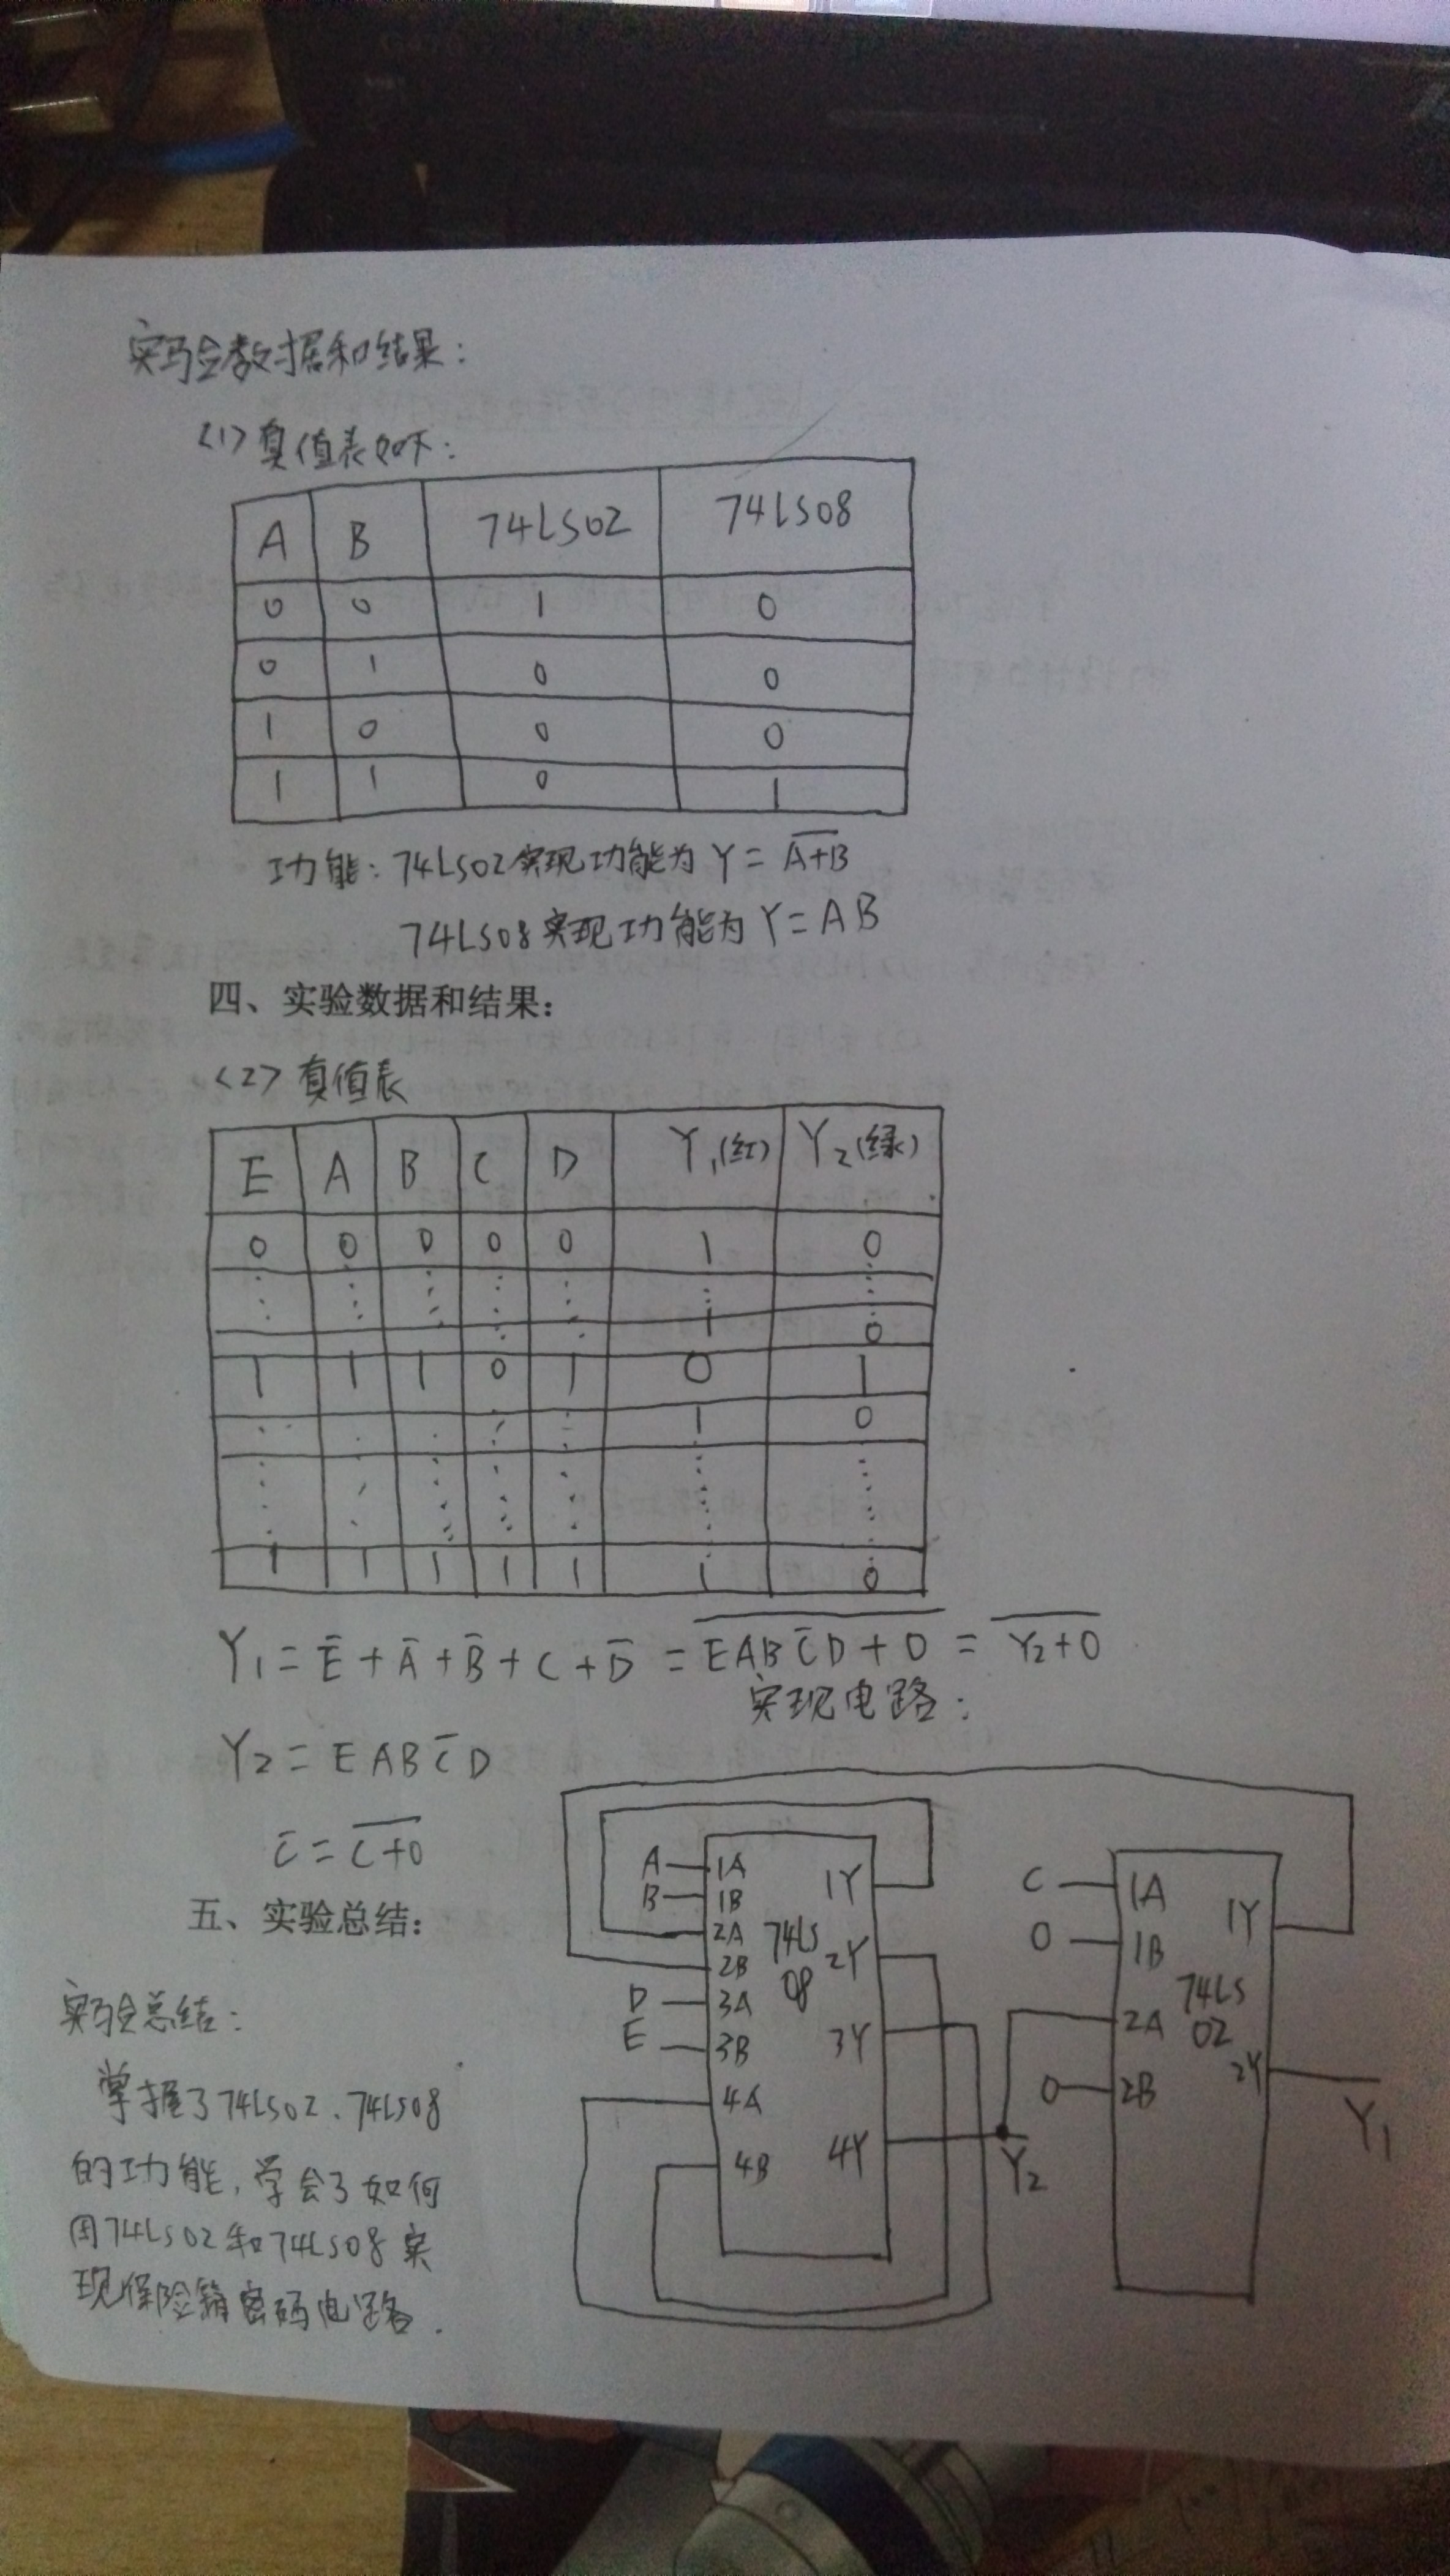 实验数据和结果：
<1> 真值表如下：
A B 74LS02 74LS08
0 0 1 0
0 1 0 0
1 0 0 0
1 1 0 1
功能：74LS02实现功能为 Y = \overline{A+B}
74LS08实现功能为 Y = AB
四、实验数据和结果：
<2> 真值表
E A B C D Y₁(红) Y₂(绿)
0 0 0 0 0 1 0
⋮ ⋮ ⋮ ⋮ ⋮ ⋮ ⋮
1 0
1 1 1 0 1 0 1
1 0
⋮ ⋮ ⋮ ⋮ ⋮ ⋮ ⋮
1 1 1 1 1 1 0
Y₁ = Ē + Ā + B̄ + C + D̄ = \overline{EABC̄D + 0} = \overline{Y₂+0}
实现电路：
Y₂ = EABC̄D
C̄ = \overline{C+0}
五、实验总结：
A 1A 1Y
B 1B
2A 74LS
2B 08 2Y
D 3A
E 3B 3Y
4A
4B 4Y Y₂
C 1A 1Y
0 1B
74LS
2A 02
0 2B 2Y Y₁
实验总结：
掌握了74LS02、74LS08
的功能，学会了如何
用74LS02和74LS08实
现保险箱密码电路.